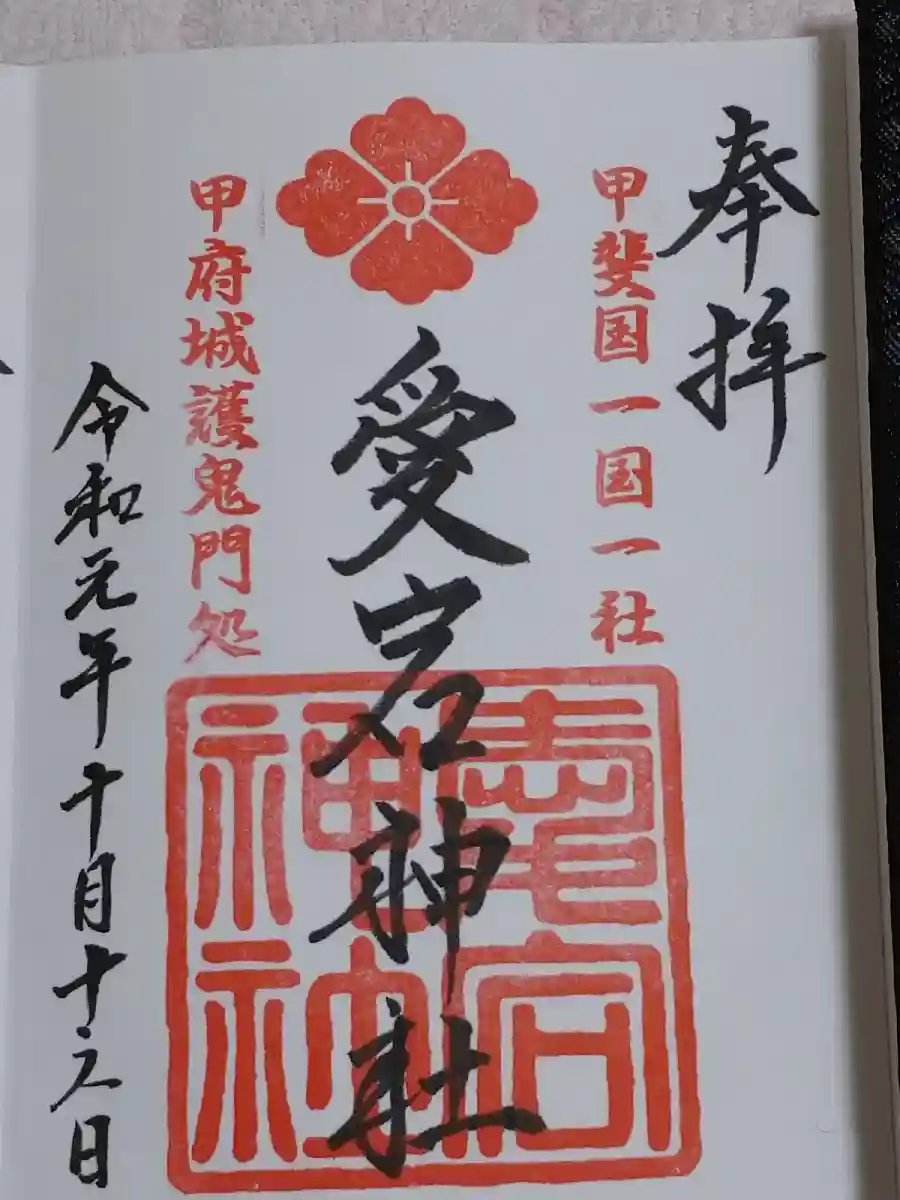 奉拝
甲斐国一国一社
愛宕神社
愛宕神社
甲府城護鬼門処
令和元年十月十六日